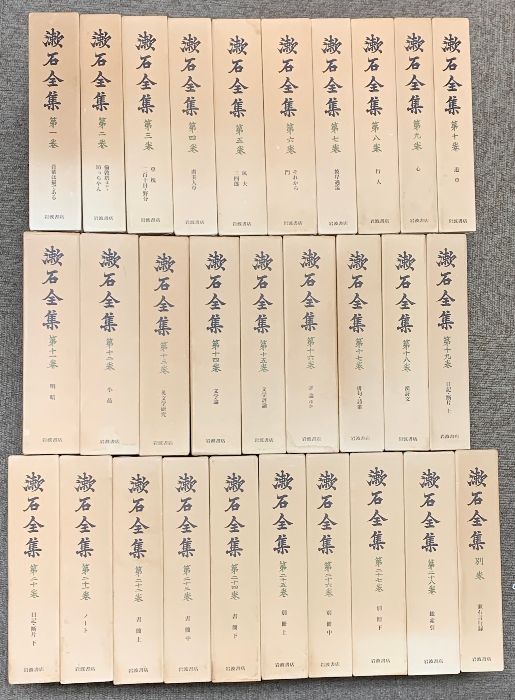 漱石全集 第一巻 吾輩は猫である 岩波書店
漱石全集 第二巻 倫敦塔ほか 坊っちゃん 岩波書店
漱石全集 第三巻 草枕 二百十日・野分 岩波書店
漱石全集 第四巻 虞美人草 岩波書店
漱石全集 第五巻 坑夫 三四郎 岩波書店
漱石全集 第六巻 それから 門 岩波書店
漱石全集 第七巻 彼岸過迄 岩波書店
漱石全集 第八巻 行人 岩波書店
漱石全集 第九巻 心 岩波書店
漱石全集 第十巻 道草 岩波書店
漱石全集 第十一巻 明暗 岩波書店
漱石全集 第十二巻 小品 岩波書店
漱石全集 第十三巻 英文学研究 岩波書店
漱石全集 第十四巻 文学論 岩波書店
漱石全集 第十五巻 文学評論 岩波書店
漱石全集 第十六巻 評論ほか 岩波書店
漱石全集 第十七巻 俳句・詩歌 岩波書店
漱石全集 第十八巻 漢詩文 岩波書店
漱石全集 第十九巻 日記・断片 上 岩波書店
漱石全集 第二十巻 日記・断片 下 岩波書店
漱石全集 第二十一巻 ノート 岩波書店
漱石全集 第二十二巻 書簡 上 岩波書店
漱石全集 第二十三巻 書簡 中 岩波書店
漱石全集 第二十四巻 書簡 下 岩波書店
漱石全集 第二十五巻 別冊 上 岩波書店
漱石全集 第二十六巻 別冊 中 岩波書店
漱石全集 第二十七巻 別冊 下 岩波書店
漱石全集 第二十八巻 総索引 岩波書店
漱石全集 別巻 漱石言行録 岩波書店